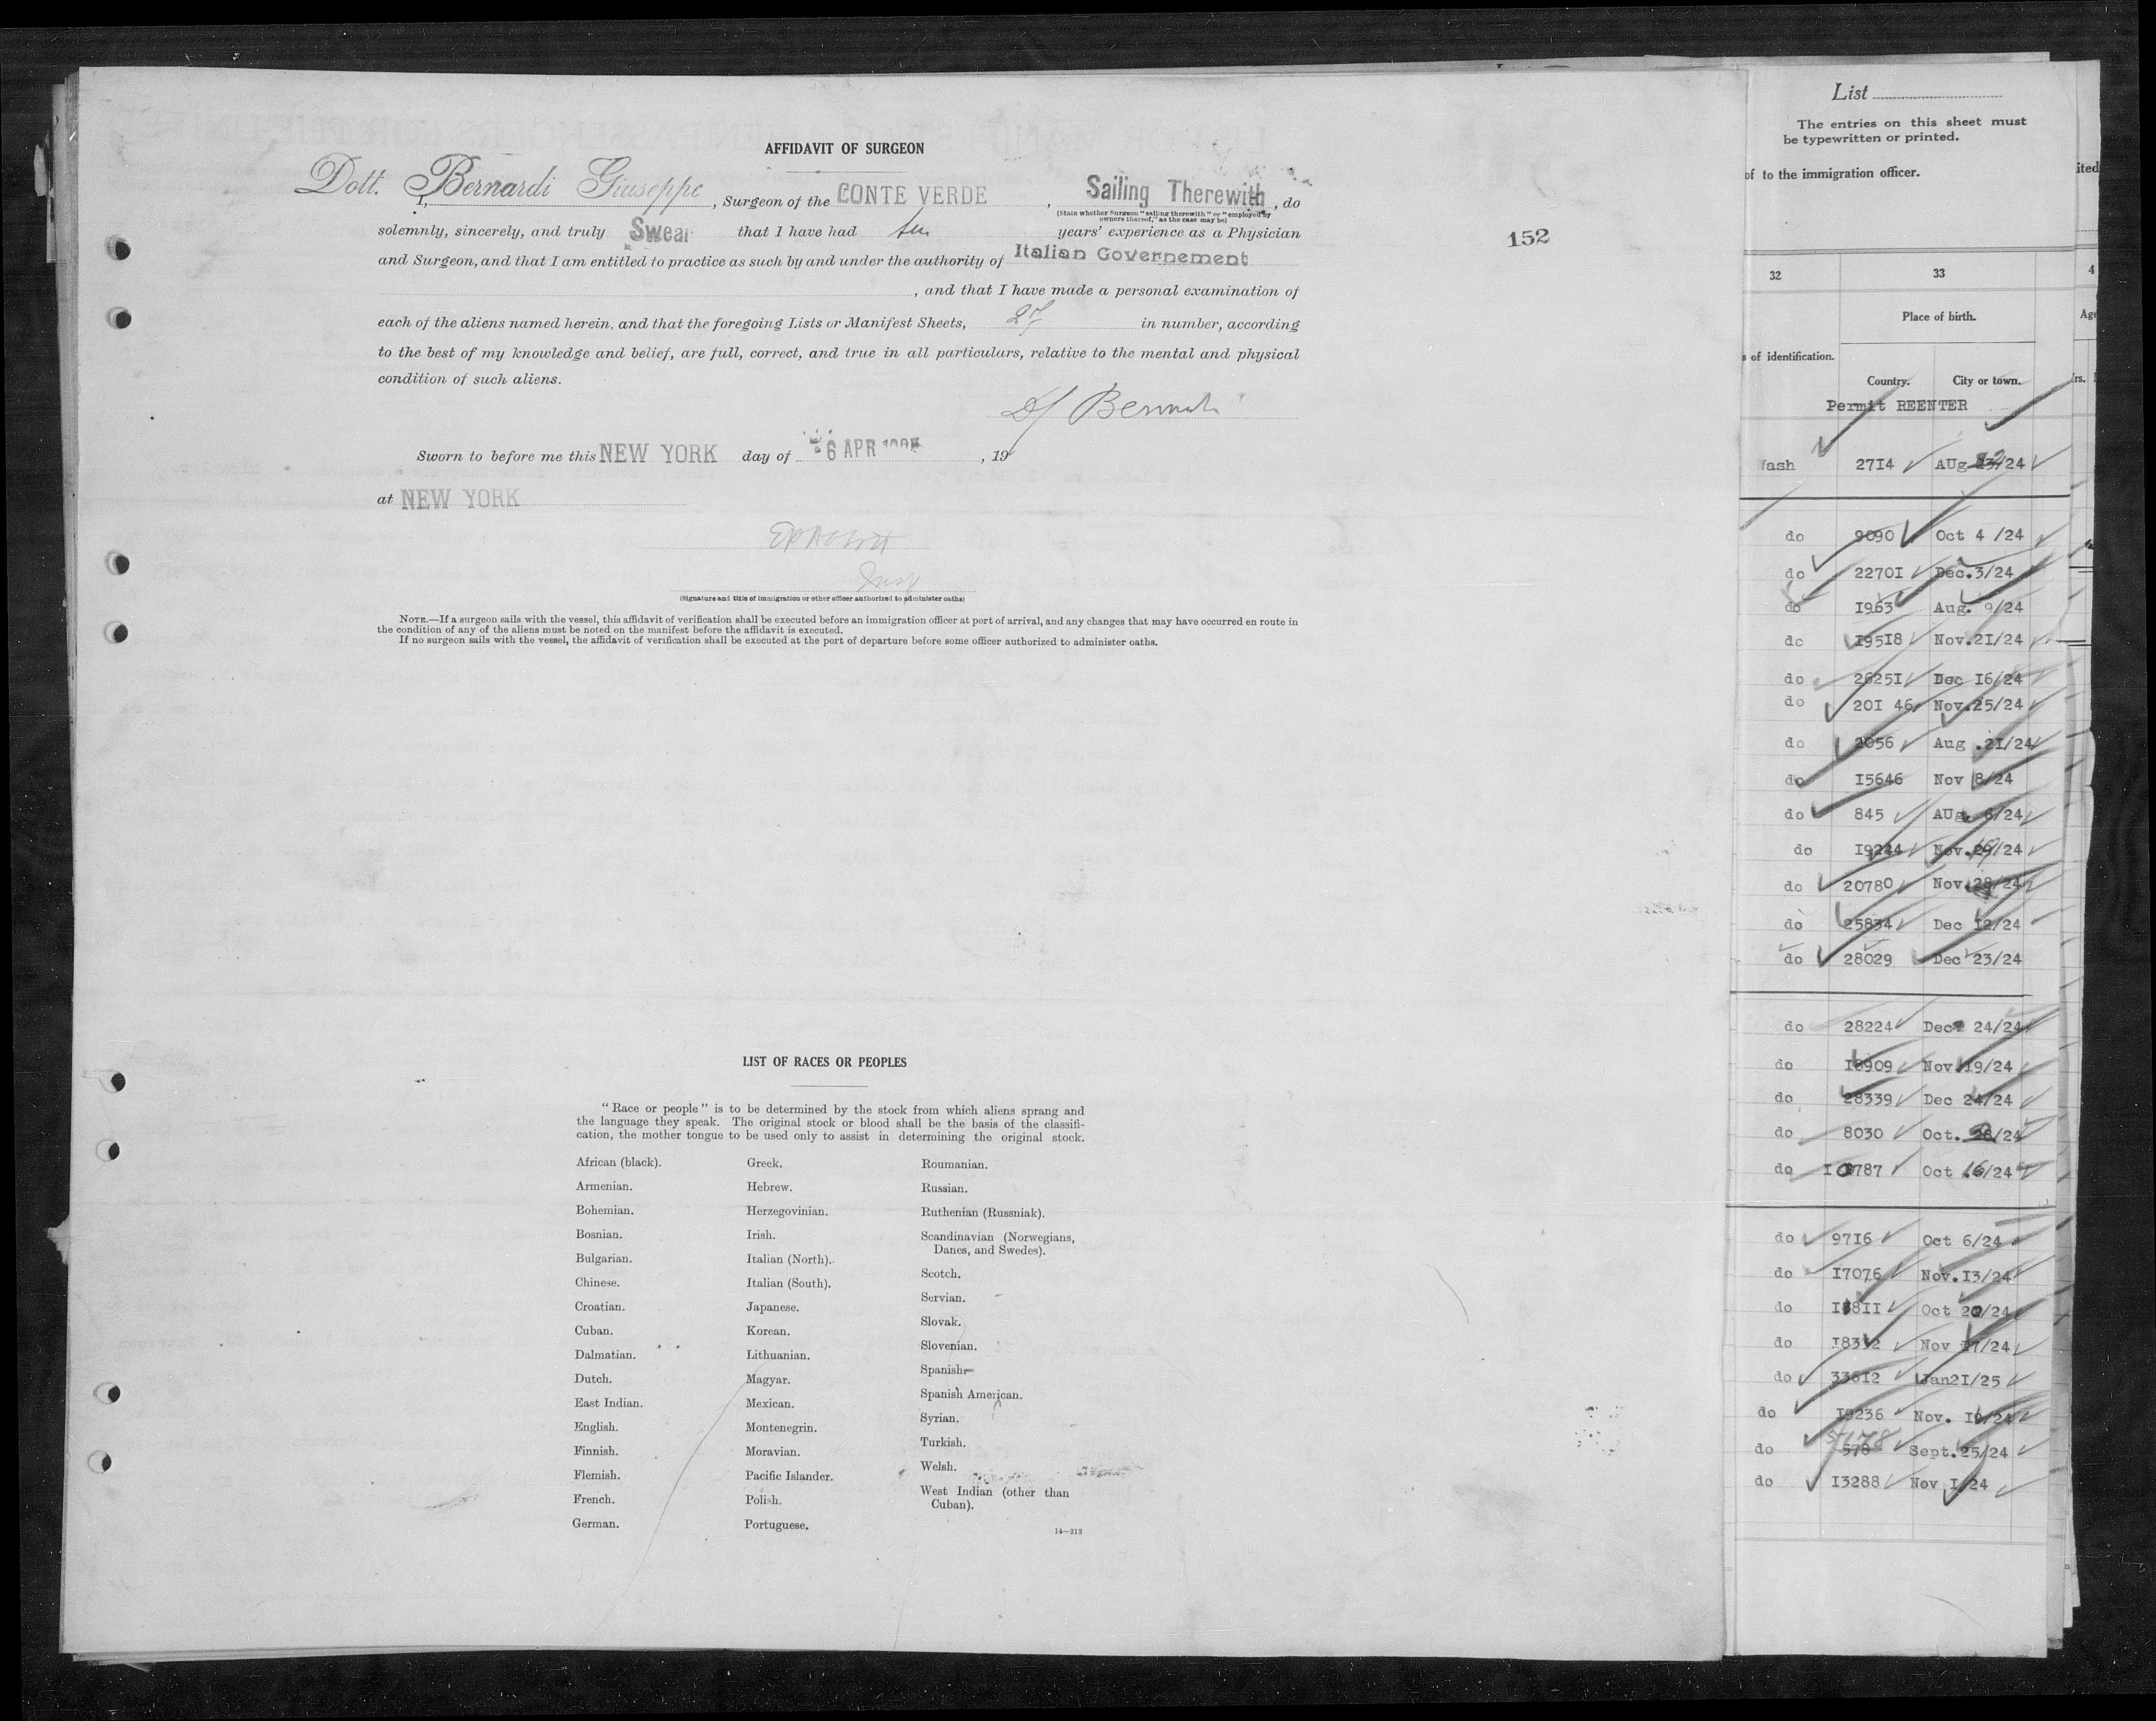 AFFIDAVIT OF SURGEON
Dott. Bernardi Giuseppe
I, , Surgeon of the CONTE VERDE , Sailing Therewith , do
(State whether Surgeon "sailing therewith" or "employed by owners thereof," as the case may be)
solemnly, sincerely, and truly Swear that I have had ten years' experience as a Physician
and Surgeon, and that I am entitled to practice as such by and under the authority of Italian Governement
, and that I have made a personal examination of
each of the aliens named herein, and that the foregoing Lists or Manifest Sheets, 27 in number, according
to the best of my knowledge and belief, are full, correct, and true in all particulars, relative to the mental and physical
condition of such aliens.
Sworn to before me this NEW YORK day of 6 APR , 19
at NEW YORK
Insp
(Signature and title of immigration or other officer authorized to administer oaths)
NOTE.—If a surgeon sails with the vessel, this affidavit of verification shall be executed before an immigration officer at port of arrival, and any changes that may have occurred en route in
the condition of any of the aliens must be noted on the manifest before the affidavit is executed.
If no surgeon sails with the vessel, the affidavit of verification shall be executed at the port of departure before some officer authorized to administer oaths.
152
LIST OF RACES OR PEOPLES
"Race or people" is to be determined by the stock from which aliens sprang and
the language they speak. The original stock or blood shall be the basis of the classifi-
cation, the mother tongue to be used only to assist in determining the original stock.
African (black).
Armenian.
Bohemian.
Bosnian.
Bulgarian.
Chinese.
Croatian.
Cuban.
Dalmatian.
Dutch.
East Indian.
English.
Finnish.
Flemish.
French.
German.
Greek.
Hebrew.
Herzegovinian.
Irish.
Italian (North).
Italian (South).
Japanese.
Korean.
Lithuanian.
Magyar.
Mexican.
Montenegrin.
Moravian.
Pacific Islander.
Polish.
Portuguese.
Roumanian.
Russian.
Ruthenian (Russniak).
Scandinavian (Norwegians,
Danes, and Swedes).
Scotch.
Servian.
Slovak.
Slovenian.
Spanish.
Spanish American.
Syrian.
Turkish.
Welsh.
West Indian (other than
Cuban).
14—213
List
The entries on this sheet must
be typewritten or printed.
of to the immigration officer.
32 33
Place of birth.
s of identification.
Country. City or town.
Permit REENTER
ash 2714 AUg /24
do 9090 Oct 4 /24
do 22701 Dec.3/24
do 1963 Aug. 9/24
do 19518 Nov.21/24
do 26251 Dec 16/24
do 201 46 Nov.25/24
do 2056 Aug .21/24
do 15646 Nov 8/24
do 845 AUg. 6/24
do 19244 Nov. /24
do 20780 Nov. /24
do 25834 Dec 12/24
do 28029 Dec 23/24
do 28224 Dec 24/24
do 18909 Nov.19/24
do 28339 Dec 24/24
do 8030 Oct. /24
do 787 Oct 16/24
do 9716 Oct 6/24
do 17076 Nov.13/24
do 811 Oct 20/24
do 18332 Nov 17/24
do 33612 Jan21/25
do 19236 Nov. 19/24
do 578 Sept.25/24
do 13288 Nov 1/24
ited
4
Age
rs.